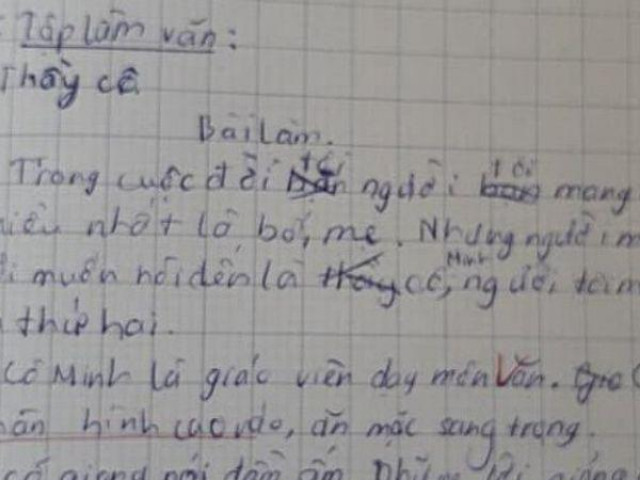 Tập làm văn:
Thầy cô
Bài làm.
Trong cuộc đời tôi người tôi mang
nhất là bố, mẹ. Nhưng người
muốn nói đến là cô Minh, người
thứ hai.
Cô Minh là giáo viên dạy môn Văn.
hình cao ráo, ăn mặc sang trọng.
giọng nói đầm ấm